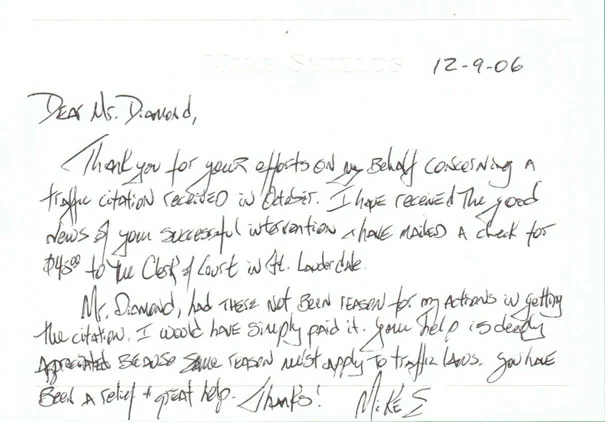 MIKE SHIELDS
12-9-06
Dear Mr. Diamond,
Thank you for your efforts on my behalf concerning a
traffic citation received in October. I have received the good
news of your successful intervention & have mailed a check for
$48.00 to the Clerk of Court in Ft. Lauderdale.
Mr. Diamond, had there not been reason for my actions in getting
the citation, I would have simply paid it. Your help is deeply
appreciated because some reason must apply to traffic laws. You have
been a relief + great help. Thanks! Mike S